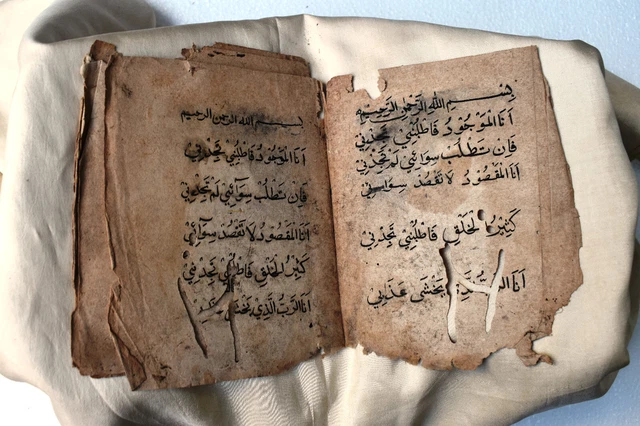 بِسْمِ اللهِ الرَّحْمٰنِ الرَّحِيْمِ
أَنَا المَوْجُوْدُ فَاطْلُبْنِي تَجِدْنِي
فَاِنْ تَطْلُبْ سِوَائِي لَمْ تَجِدْنِي
أَنَا المَقْصُوْدُ لَا تَقْصُدْ سِوَائِي
كَثِيْرُ الْخَلْقِ فَاطْلُبْنِي تَجِدْنِي
أَنَا يَخْشَى عَذَابِي
بسم الله الرحمن الرحيم
أَنَا المَوْجُوْدُ فَاطْلُبْنِي تَجِدْنِي
فَاِنْ تَطْلُبْ سِوَائِي لَمْ تَجِدْنِي
أَنَا المَقْصُوْدُ لَا تَقْصُدْ سِوَائِي
كَثِيْرُ الْخَلْقِ فَاطْلُبْنِي تَجِدْنِي
أَنَا الرَّبُّ الَّذِي يَخْشَى